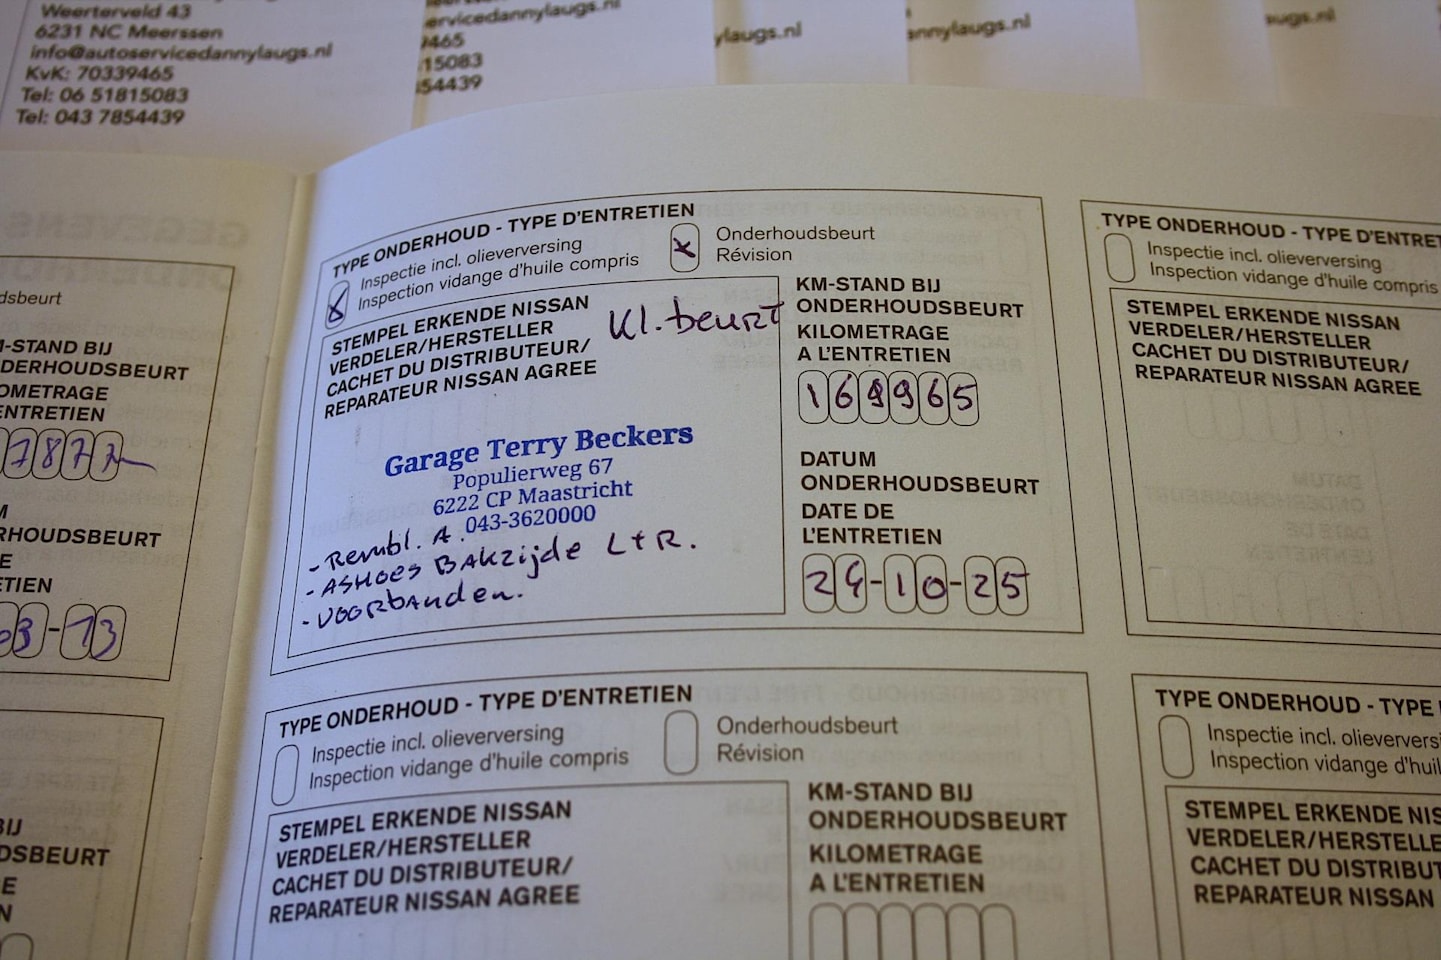 Weerterveld 43
6231 NC Meerssen
info@autoservicedannylaugs.nl
KvK: 70339465
Tel: 06 51815083
Tel: 043 7854439
ervicedannylaugs.nl
9465
15083
54439
ylaugs.nl
annylaugs.nl
augs.nl
dsbeurt
M-STAND BIJ
DERHOUDSBEURT
OMETRAGE
ENTRETIEN
M
RHOUDSBEURT
E
ETIEN
03-13
BIJ
DSBEURT
E
N
TYPE ONDERHOUD - TYPE D'ENTRETIEN
Inspectie incl. olieverversing
Inspection vidange d'huile compris
x
Onderhoudsbeurt
Révision
x
STEMPEL ERKENDE NISSAN
VERDELER/HERSTELLER
CACHET DU DISTRIBUTEUR/
REPARATEUR NISSAN AGREE
Kl. beurt
Garage Terry Beckers
Populierweg 67
6222 CP Maastricht
043-3620000
- Rembl. A.
- ASHOES BAKzijde L+R.
- VOORbanden.
KM-STAND BIJ
ONDERHOUDSBEURT
KILOMETRAGE
A L'ENTRETIEN
DATUM
ONDERHOUDSBEURT
DATE DE
L'ENTRETIEN
-10-25
TYPE ONDERHOUD - TYPE D'ENTRET
Inspectie incl. olieverversing
Inspection vidange d'huile compris
STEMPEL ERKENDE NISSAN
VERDELER/HERSTELLER
CACHET DU DISTRIBUTEUR/
REPARATEUR NISSAN AGREE
TYPE ONDERHOUD - TYPE D'ENTRETIEN
Inspectie incl. olieverversing
Inspection vidange d'huile compris
Onderhoudsbeurt
Révision
STEMPEL ERKENDE NISSAN
VERDELER/HERSTELLER
CACHET DU DISTRIBUTEUR/
REPARATEUR NISSAN AGREE
KM-STAND BIJ
ONDERHOUDSBEURT
KILOMETRAGE
A L'ENTRETIEN
TYPE ONDERHOUD - TYPE
Inspectie incl. olieverversi
Inspection vidange d'huil
STEMPEL ERKENDE NIS
VERDELER/HERSTELLE
CACHET DU DISTRIBUT
REPARATEUR NISSAN